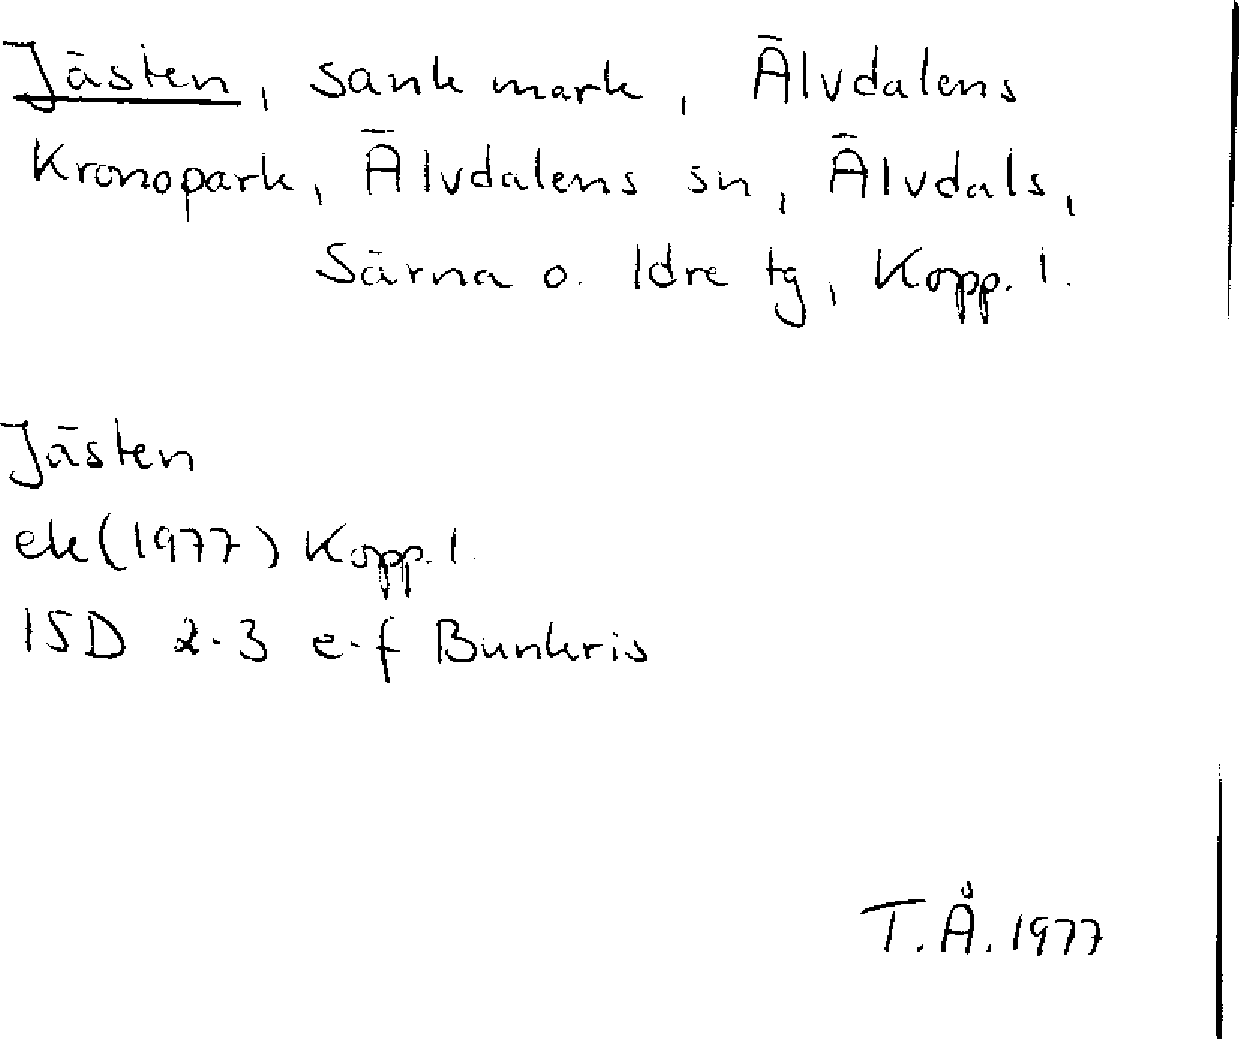 Jästen, sank mark, Älvdalens
Kronopark, Älvdalens sn, Älvdals,
Särna o. Idre tg, Kopp. l.
Jästen
ek (1977) Kopp. l.
15D 2-3 e-f Bunkris
T. Å. 1977